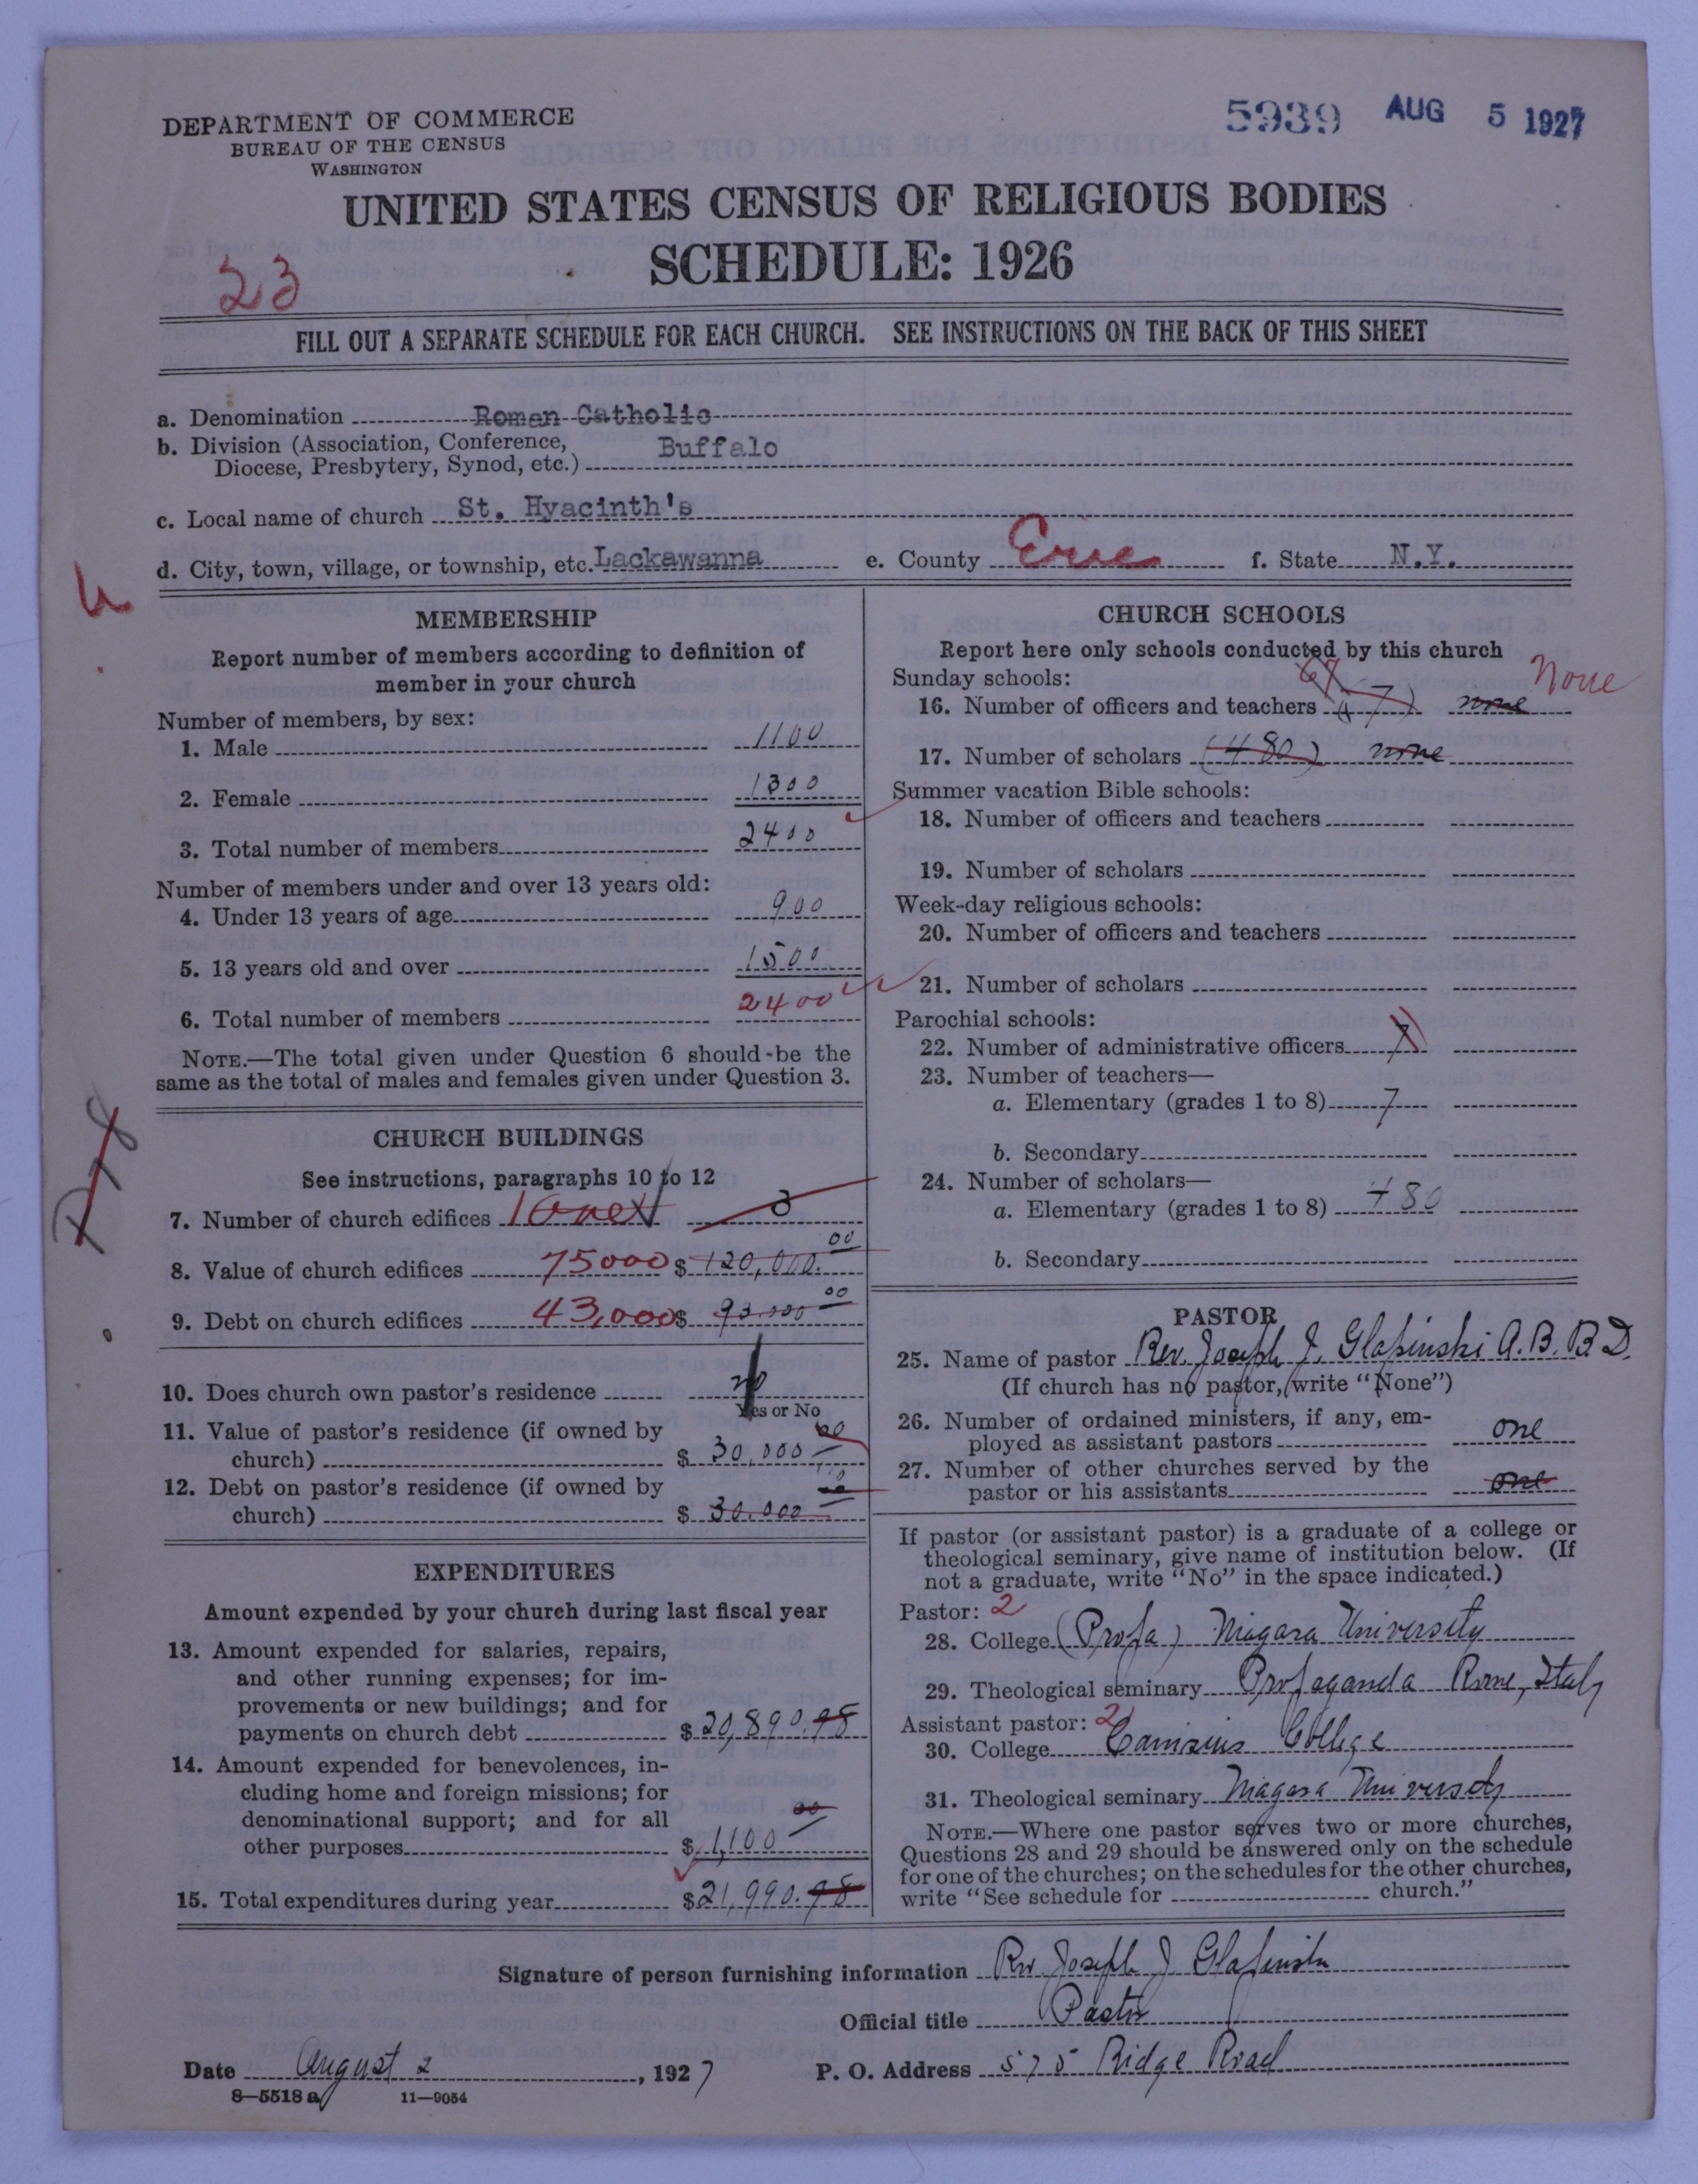 DEPARTMENT OF COMMERCE
BUREAU OF THE CENSUS
WASHINGTON
5939 AUG 5 1927
UNITED STATES CENSUS OF RELIGIOUS BODIES
SCHEDULE: 1926
23
FILL OUT A SEPARATE SCHEDULE FOR EACH CHURCH. SEE INSTRUCTIONS ON THE BACK OF THIS SHEET
a. Denomination Roman Catholic
b. Division (Association, Conference,
Diocese, Presbytery, Synod, etc.) Buffalo
c. Local name of church St. Hyacinth's
d. City, town, village, or township, etc. Lackawanna e. County Erie f. State N.Y.
MEMBERSHIP
Report number of members according to definition of
member in your church
Number of members, by sex:
1. Male 1100
2. Female 1300
3. Total number of members 2400
Number of members under and over 13 years old:
4. Under 13 years of age 900
5. 13 years old and over 1500
6. Total number of members 2400
NOTE.—The total given under Question 6 should be the
same as the total of males and females given under Question 3.
CHURCH BUILDINGS
See instructions, paragraphs 10 to 12
7. Number of church edifices 1 one
8. Value of church edifices 75000 $ 120,000.00
9. Debt on church edifices 43,000 $ 93.000 00
10. Does church own pastor's residence no
Yes or No
11. Value of pastor's residence (if owned by
church) $ 30,000 00
12. Debt on pastor's residence (if owned by
church) $ 30.000
EXPENDITURES
Amount expended by your church during last fiscal year
13. Amount expended for salaries, repairs,
and other running expenses; for im-
provements or new buildings; and for
payments on church debt $ 20,890.98
14. Amount expended for benevolences, in-
cluding home and foreign missions; for
denominational support; and for all
other purposes $ 1,100 00
15. Total expenditures during year $ 21,990.98
CHURCH SCHOOLS
Report here only schools conducted by this church
Sunday schools: None
16. Number of officers and teachers (7) none
17. Number of scholars (480) none
Summer vacation Bible schools:
18. Number of officers and teachers
19. Number of scholars
Week-day religious schools:
20. Number of officers and teachers
21. Number of scholars
Parochial schools:
22. Number of administrative officers 7
23. Number of teachers—
a. Elementary (grades 1 to 8) 7
b. Secondary
24. Number of scholars—
a. Elementary (grades 1 to 8) 480
b. Secondary
PASTOR
25. Name of pastor Rev. Joseph J. Glapinski A.B. B.D.
(If church has no pastor, write "None")
26. Number of ordained ministers, if any, em-
ployed as assistant pastors one
27. Number of other churches served by the
pastor or his assistants one
If pastor (or assistant pastor) is a graduate of a college or
theological seminary, give name of institution below. (If
not a graduate, write "No" in the space indicated.)
Pastor: 2
28. College (Propa) Niagara University
29. Theological seminary Propaganda Rome, Italy
Assistant pastor: 2
30. College Canisius College
31. Theological seminary Niagara University
NOTE.—Where one pastor serves two or more churches,
Questions 28 and 29 should be answered only on the schedule
for one of the churches; on the schedules for the other churches,
write "See schedule for church."
Signature of person furnishing information Rev. Joseph J Glapinski
Official title Pastor
Date August 2, 1927 P. O. Address 575 Ridge Road
8—5518 a 11—9054